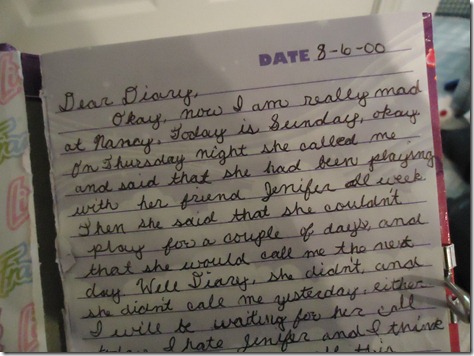 DATE 8-6-00
Dear Diary,
Okay, now I am really mad
at Nancy. Today is Sunday, okay.
On Thursday night she called me
and said that she had been playing
with her friend Jenifer all week.
Then she said that she couldn't
play for a couple of days, and
that she would call me the next
day. Well Diary, she didn't, and
she didn't call me yesterday, either
I will be waiting for her call
today. I hate Jenifer and I think
all this